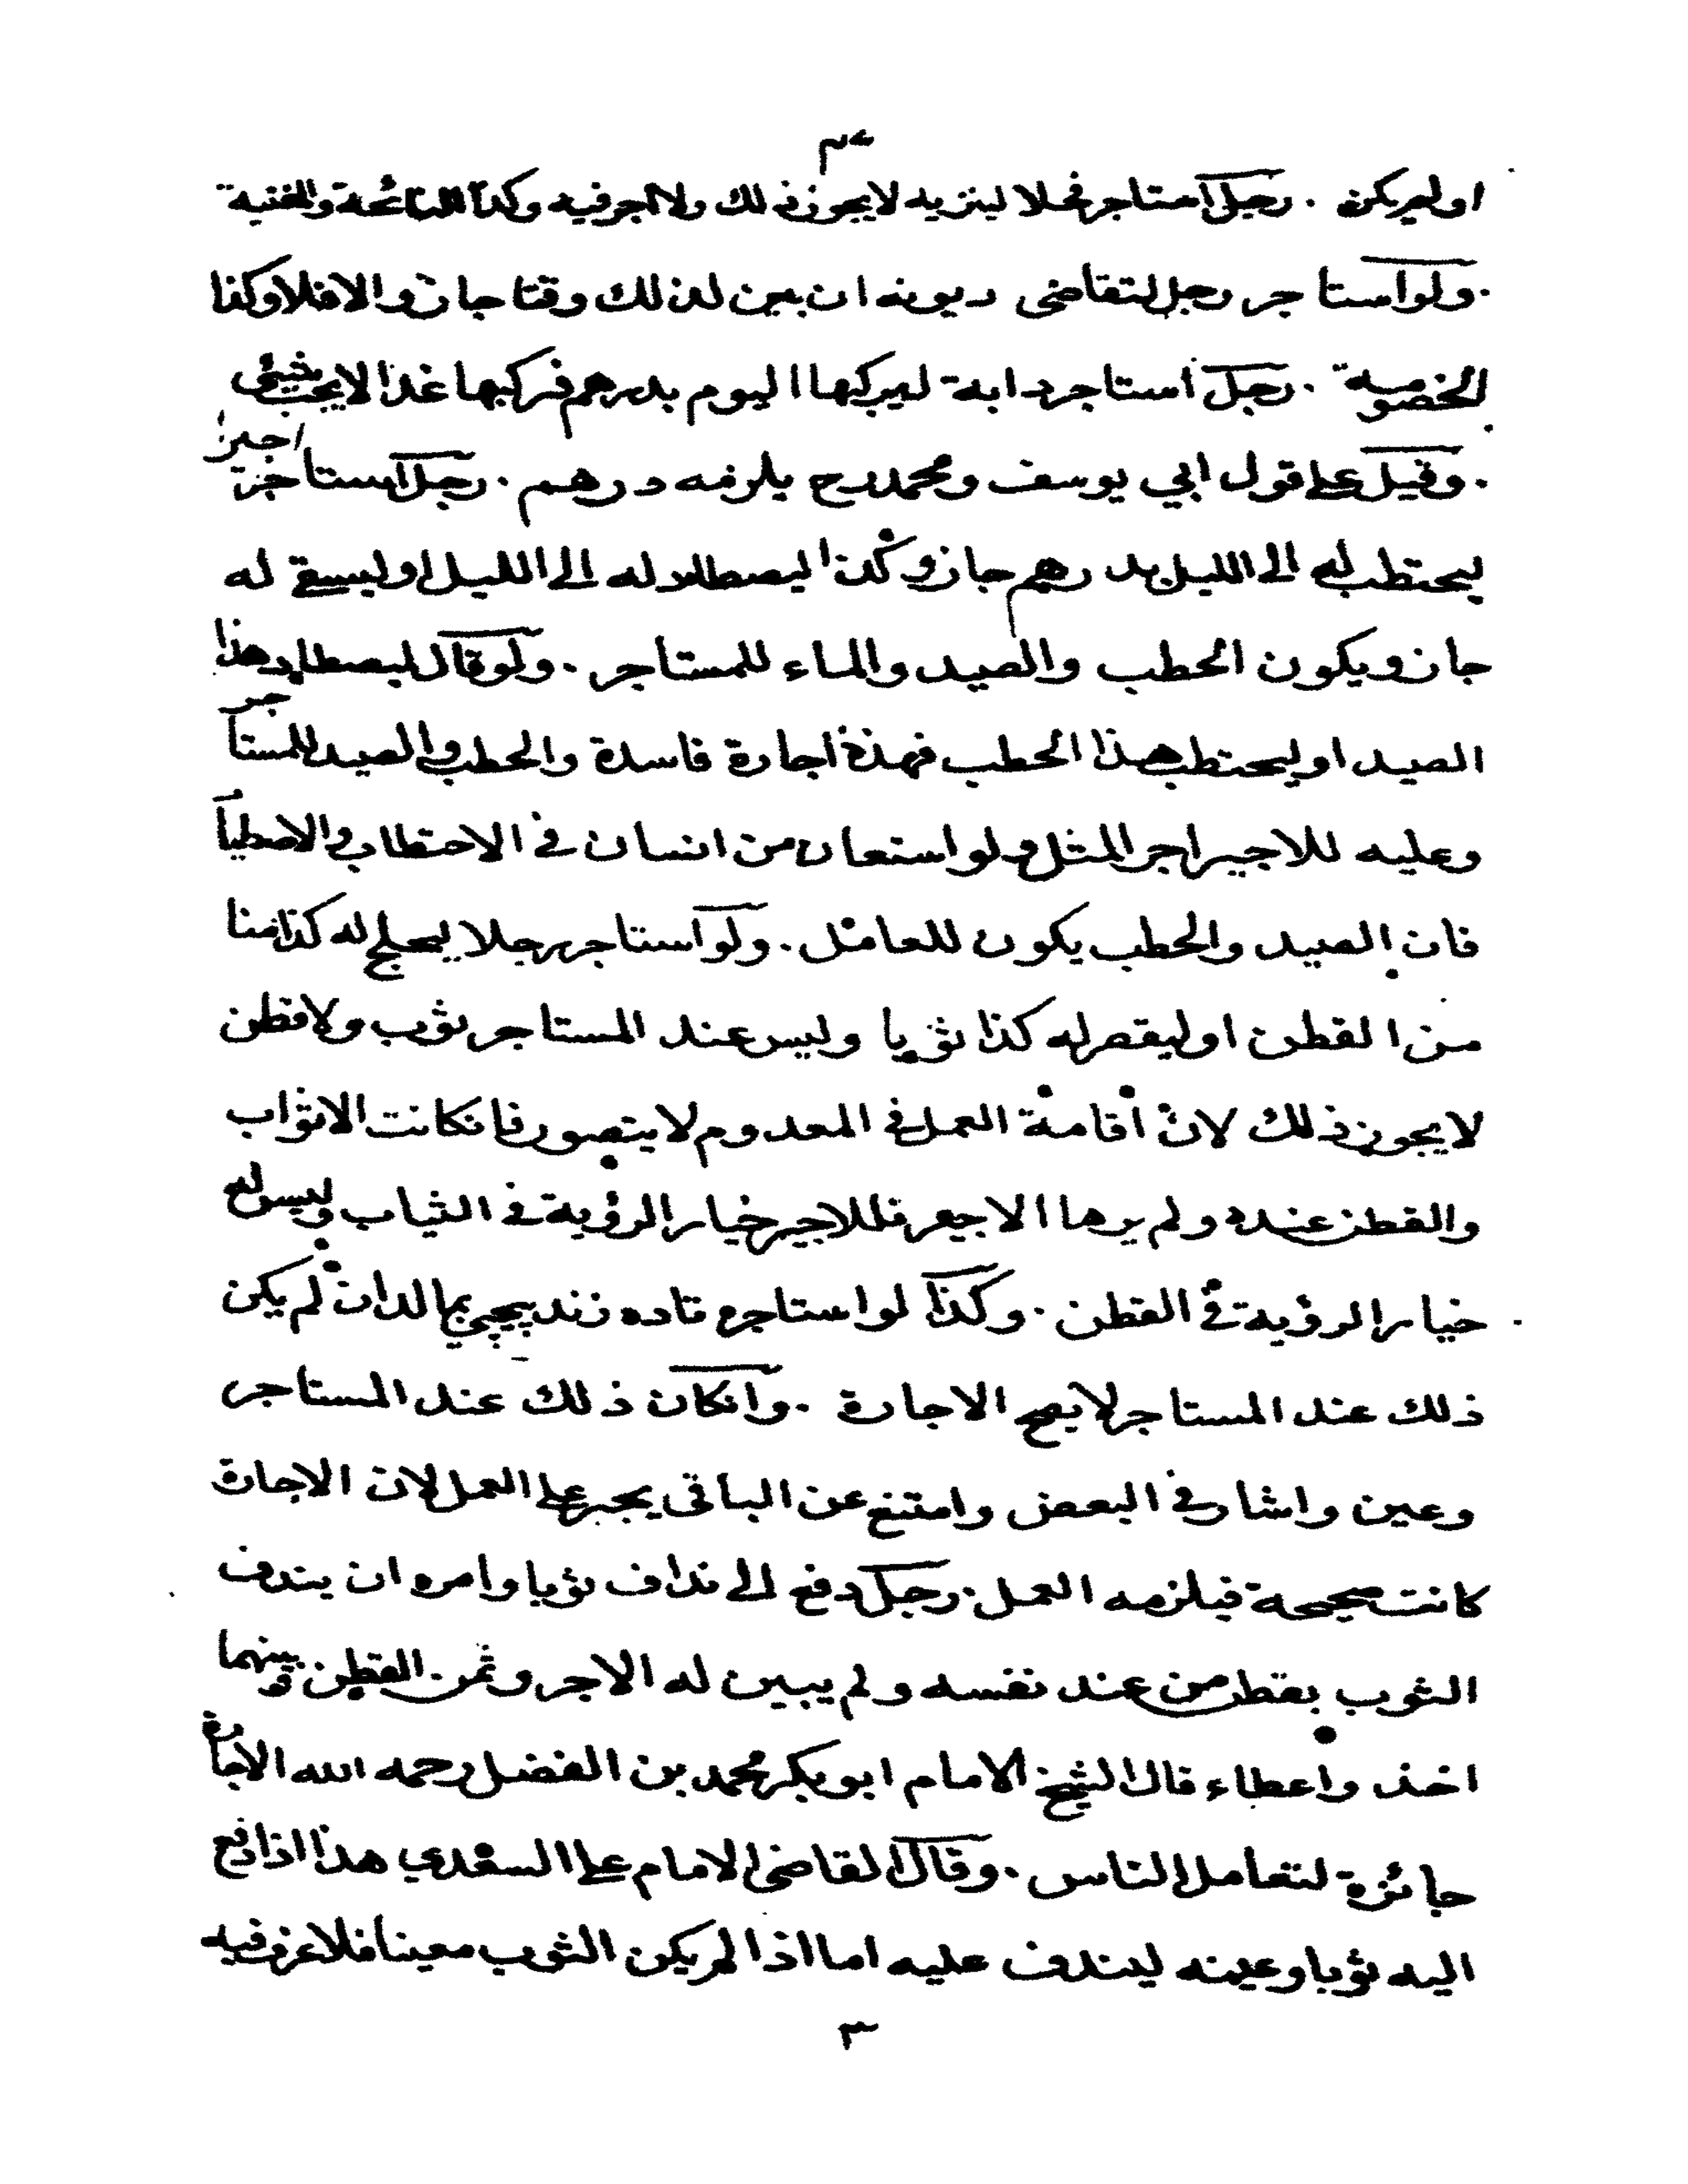 اولم يكن . رجل استاجر فحلا لينزيه لا يجوز ذلك ولا اجر فيه وكذا النائحة والمغنية
. ولو استاجر رجل لتقاضى ديونه ان بين لذلك وقتا جاز والا فلا وكذا
الخصومة . رجل استاجر دابة ليركبها اليوم بدرهم فركبها غدا لا يجب شيئ
. وقيل على قول ابي يوسف ومحمد رح يلزمه درهم . رجل استاجر اجيرا
ليحتطب له الى الليل بدرهم جاز وكذا ليصطاد له الى الليل او ليسقى له
جاز ويكون الحطب والصيد والماء للمستاجر . ولو قال ليصطاد هذا
الصيد او ليحتطب هذا الحطب فهذة اجارة فاسدة والحطب والصيد للمستاجر
وعليه للاجير اجر المثل ولو استعان من انسان في الاحتطاب والاصطياد
فان الصيد والحطب يكون للعامل . ولو استاجر رجلا ليحلج له كذا منا
من القطن او ليقصر له كذا ثوبا وليس عند المستاجر ثوب ولا قطن
لا يجوز ذلك لان اقامة العمل في المعدوم لا يتصور فانكانت الاثواب
والقطن عنده ولم يرها الاجير فللاجير خيار الرؤية في الثياب وليس له
خيار الرؤية في القطن . وكذا لو استاجره تاده زند پيچي بمالد ان لم يكن
ذلك عند المستاجر لا يصح الاجارة . وانكان ذلك عند المستاجر
وعين واشار في البعض وامتنع عن الباقى يجبر على العمل لان الاجارة
كانت صحيحة فيلزمه العمل . رجل دفع الى نداف ثوبا وامره ان يندف
الثوب بقطن من عند نفسه ولم يبين له الاجر وثمن القطن وبينهما
اخذ واعطاء قال الشيخ الامام ابو بكر محمد بن الفضل رحمه الله الاجارة
جائزة لتعامل الناس . وقال القاضى الامام على السغدي هذا اذا دفع
اليه ثوبا وعينه ليندف عليه اما اذا لم يكن الثوب معينا فلا عرف فيه
٣